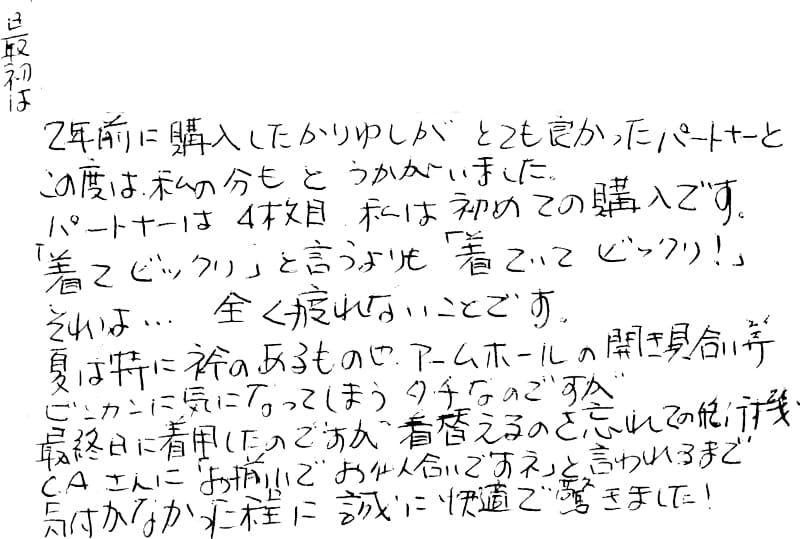 最初は
2年前に購入したかりゆしが とても良かったパートナーと
この度は、私の分もと うかがいました。
パートナーは 4枚目 私は初めての購入です。
「着てビックリ」と言うよりも「着ていて ビックリ!」
それは… 全く疲れないことです。
夏は特に衿のあるものや、アームホールの開き具合い等
ビンカンに気になってしまうタチなのですが
最終日に着用したのですが 着替えるのを忘れての飛行機
CAさんに「お揃いでお似合いですネ」と言われるまで
気付かなかった程に 誠に快適で驚きました!